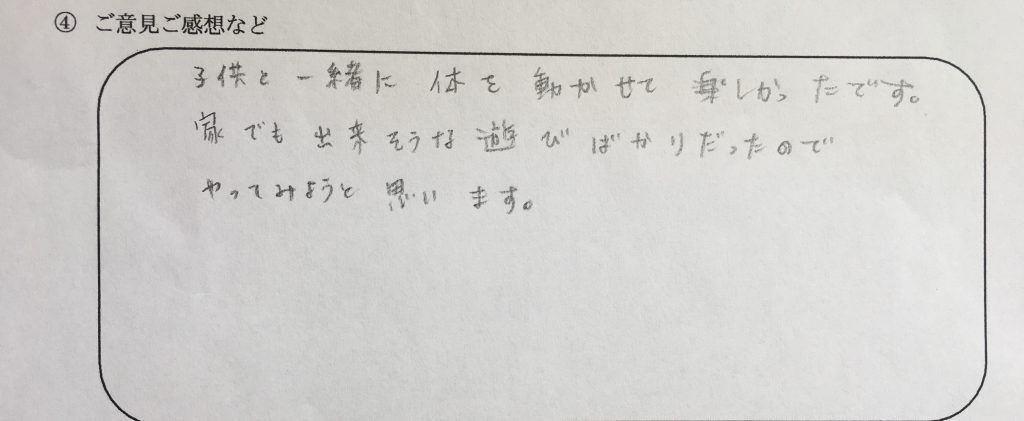 ④ ご意見ご感想など
子供と一緒に体を動かせて楽しかったです。
家でも出来そうな遊びばかりだったので
やってみようと思います。